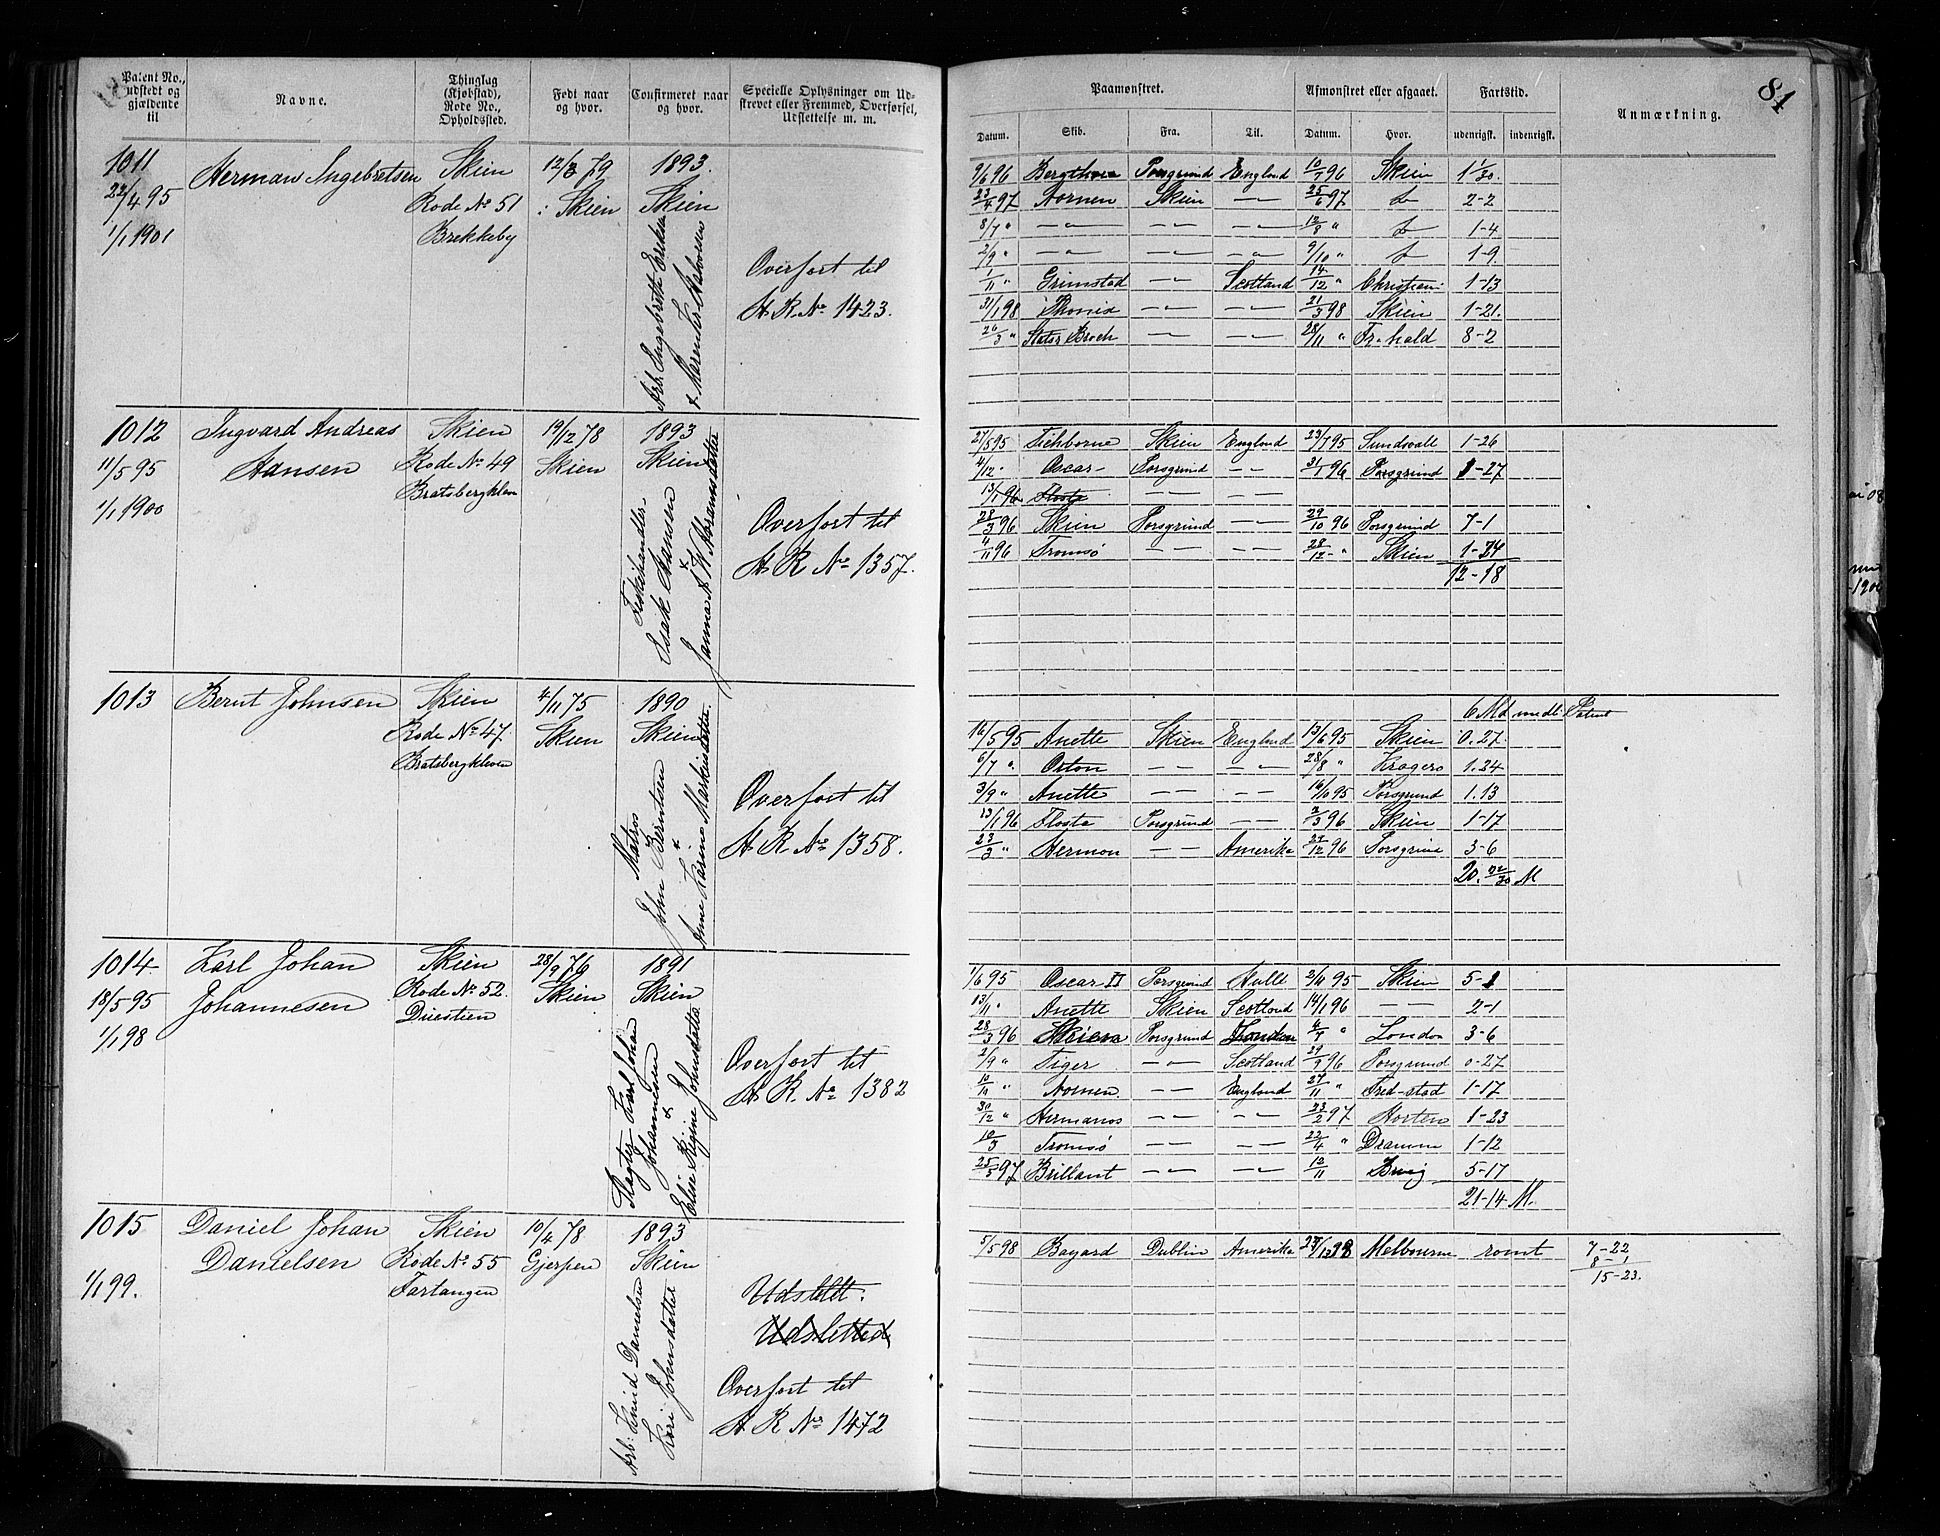 Patent No.,
udstedt og
gjældende
til
Navne.
Thinglag
(Kjøbstad),
Rode No.,
Opholdssted.
Født naar
og hvor.
Confirmeret naar
og hvor.
Specielle Oplysninger om Ud-
skrevet eller Fremmed, Overførsel,
Udslettelse m. m.
1011
22/4 95
1/1 1901
Herman Ingebretsen
Skien
Rode No 51
Brekkeby
12/3 79
Skien
1893.
Skien
Arb. Ingebrett Eriksen
+ Maren Halvorsen
Overfort til
A. R. No 1423.
1012
11/5 95
1/1 1900
Ingvard Andreas
Hansen
Skien
Rode No 49
Bratsbergkleven
19/12 78
Skien
1893
Skien
Fiskehandler
Isak Hansen
+
Abramsdatter
Overfort til
A R No 1357.
1013
Bernt Johnsen
Skien
Rode No 47.
Bratsbergkleven
4/11 75
Skien
1890
Skien
Matros
John Berntsen
+
Anne Karine Markusdatter.
Overfort til
A. R. No 1358.
1014
18/5 95
1/1 98
Karl Johan
Johannesen
Skien
Rode No 52.
Duestien
28/9 76
Skien
1891
Skien
Slagter Karl Johan
Johannesen
+
Elise Regine Johnsdatter
Overfort til
A R. No 1382
1015
1/1 99.
Daniel Johan
Danielsen
Skien
Rode No 55
Fartangen
10/4 78
Gjerpen
1893
Skien
Arb: Knud Danielsen
Kari Johnsdatter
Udslett.
Udslettet
Overfort til
A R No 1472
81
Paamønstret.
Afmønstret eller afgaaet.
Fartstid.
Anmærkning.
Datum. Skib. Fra. Til. Datum. Hvor. udenrigsk. indenrigsk.
9/6 96 Porsgrund England 10/7 96 Skien 1 1/30.
23/4 97 Nornen Skien — 25/6 97 do 2-2
8/7 " — — — 12/8 " do 1-4
2/9 " — — — 9/10 " do 1-9
1/11 " Grimstad — Scotland 14/12 " Christiani 1-13
31/1 98 — — 21/3 98 Skien 1-21.
26/3 " Stats. Broch — — 28/11 " Fr.hald 8-2
27/5 95 Tichborne Skien England 23/7 95 Sundsvall 1-26
4/12 " Oscar Porsgrund — 31/1 96 Porsgrund 1-27
13/1 96 Flosta — —
28/3 96 Skien Porsgrund — 29/10 96 Porsgrund 7-1
4/11 96 Tromsø — — 28/12 " Skien 1-24
12-18
6 Md indtl Patent
16/5 95 Anette Skien England 13/6 95 Skien 0.27
6/7 " Orion — — 28/8 " Kragero 1.24
3/9 " Anette — — 16/ 95 Porsgrund 1.13
13/1 96 Flosta Porsgrund — 96 Skien 1-17
23/3 " Hermon — Amerika /12 96 Porsgrund 3-6
20. 22/30 M
1/6 95 Oscar II Porsgrund Hull 2/11 95 Skien 5-1
13/11 " Anette Skien Scotland 14/1 96 — 2-1
28/3 96 Skien Porsgrund London " London 3-6
2/9 " Tiger — Scotland 96 Porsgrund 0-27
10/11 " Nornen — England 27/11 " Fred-stad 1-17
30/12 " Hermanos — — 23/2 97 Horten 1-23
10/3 Tromsø — — 22/4 " Dramm 1-12
25/5 97 Brillant — — 12/11 Brevig 5-17
21-14 M.
5/5 98 Bayard Dublin Amerika 98 Melbourne romt 7-22
8-1
15-23.